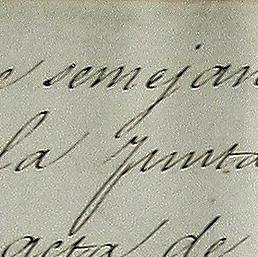 e semejan
la Junta
acta de